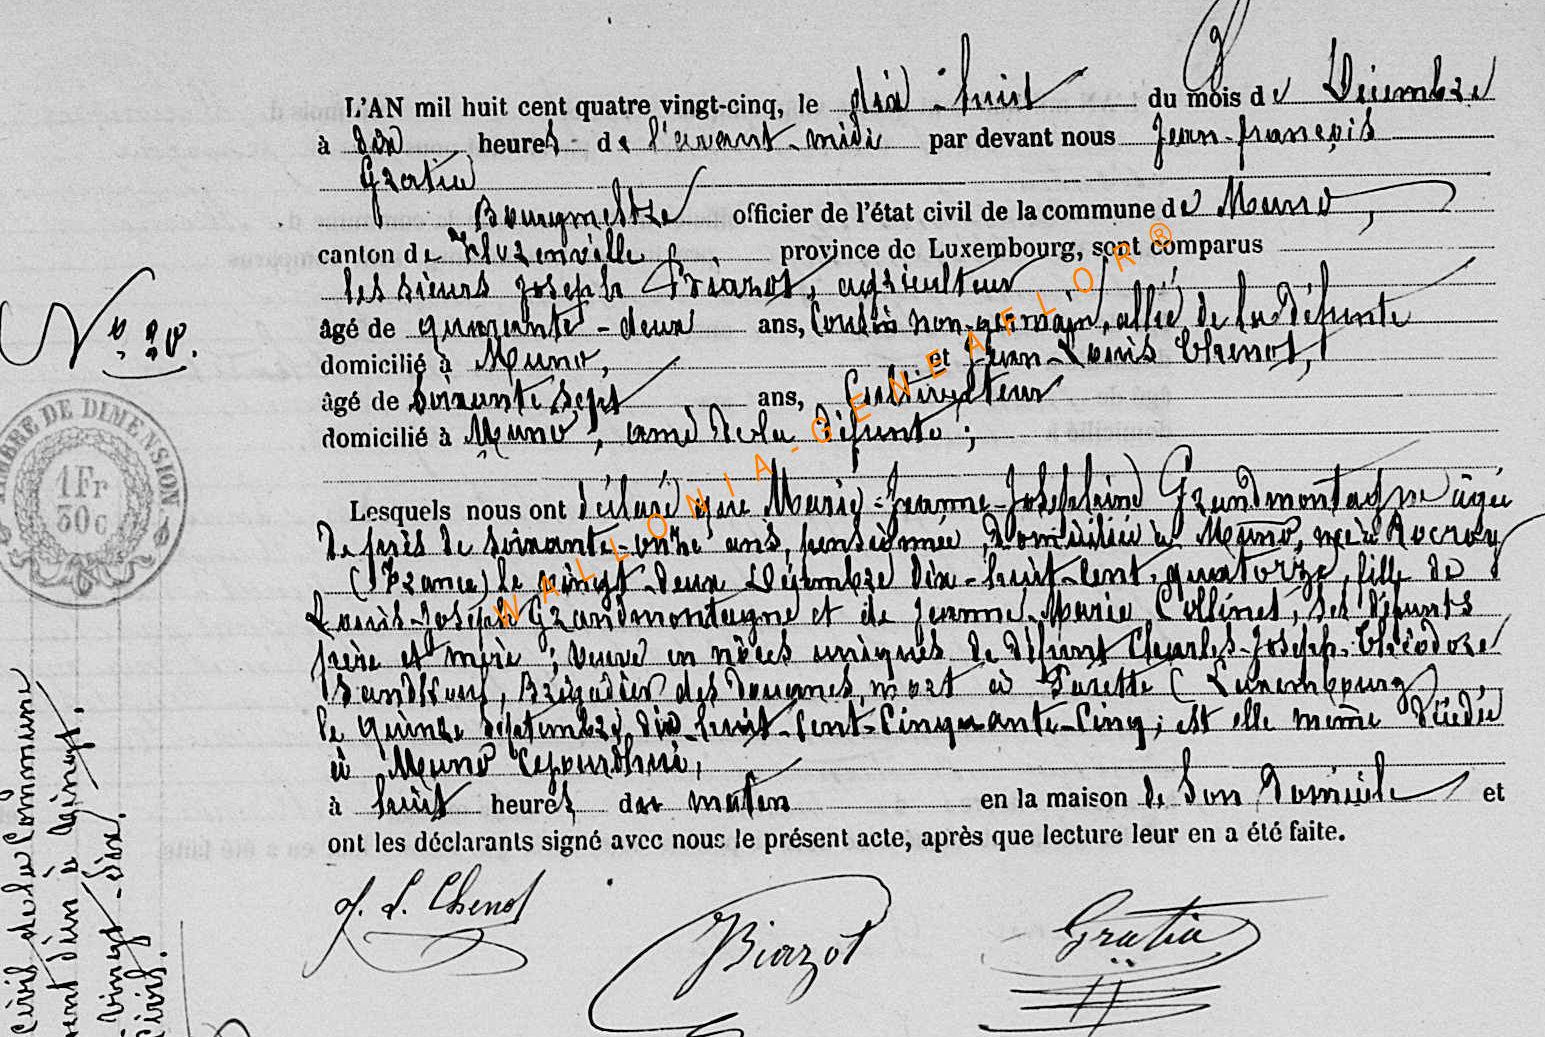 L'AN mil huit cent quatre vingt-cinq, le dix-huit du mois de Décembre
à dix heures de l'avant-midi par devant nous Jean-François
Gratia
Bourgmestre officier de l'état civil de la commune de Muno,
canton de Florenville province de Luxembourg, sont comparus
les sieurs Joseph agriculteur
âgé de quarante-deux ans, Cousin non-germain, allié de la défunte
domicilié à Muno, et Jean-Louis Chenot,
âgé de Soixante sept ans, Cultivateur
domicilié à Muno, ami de la défunte;
Lesquels nous ont déclaré que Marie-Jeanne-Joséphine Grandmontagne âgée
de près de soixante-onze ans, pensionnée, domiciliée à Muno, née à Rocroy
(France) le vingt-deux Décembre dix-huit-cent-quatorze, fille de
Louis-Joseph Grandmontagne et de Jeanne-Marie Collinet, ses défunts
père et mère; veuve en nôces uniques de défunt Charles-Joseph-Théodore
Brigadier des Douanes, mort à Surette (Luxembourg)
le quinze Septembre dix-huit-cent-cinquante-cinq; est elle même décédée
à Muno cejourdhui,
à huit heures du matin en la maison de Son Domicile et
ont les déclarants signé avec nous le présent acte, après que lecture leur en a été faite.
N° 20.
TIMBRE DE DIMENSION
1Fr
30c
J. L. Chenot
Biazot
Gratia
Civil de la Commune
vingt-six.
Civil.
WALLONIA-GENEAFLOR®